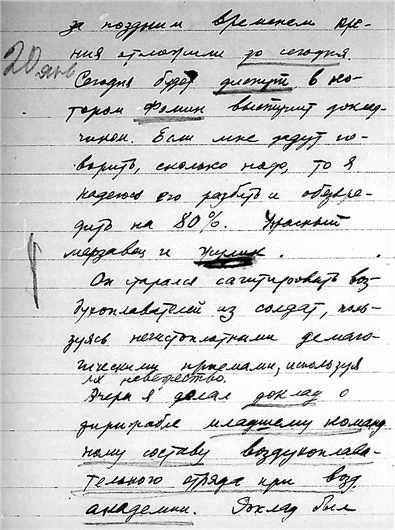 за поздним временем пре-
ния отложили до сегодня.
20 янв
Сегодня будет диспут, в ко-
тором Фомин выступит доклад-
чиком. Если мне дадут го-
ворить, сколько надо, то я
надеюсь его разбить и обезвре-
дить на 80%. Ужасный
мерзавец и жулик.
Он старался сагитировать воз-
духоплавателей из солдат, поль-
зуясь нечистоплотными демаго-
гическими приемами, используя
их невежество.
Вчера я делал доклад о
дирижабле младшему команд.
ному составу воздухоплава-
тельного отряда при возд.
академии. Доклад был